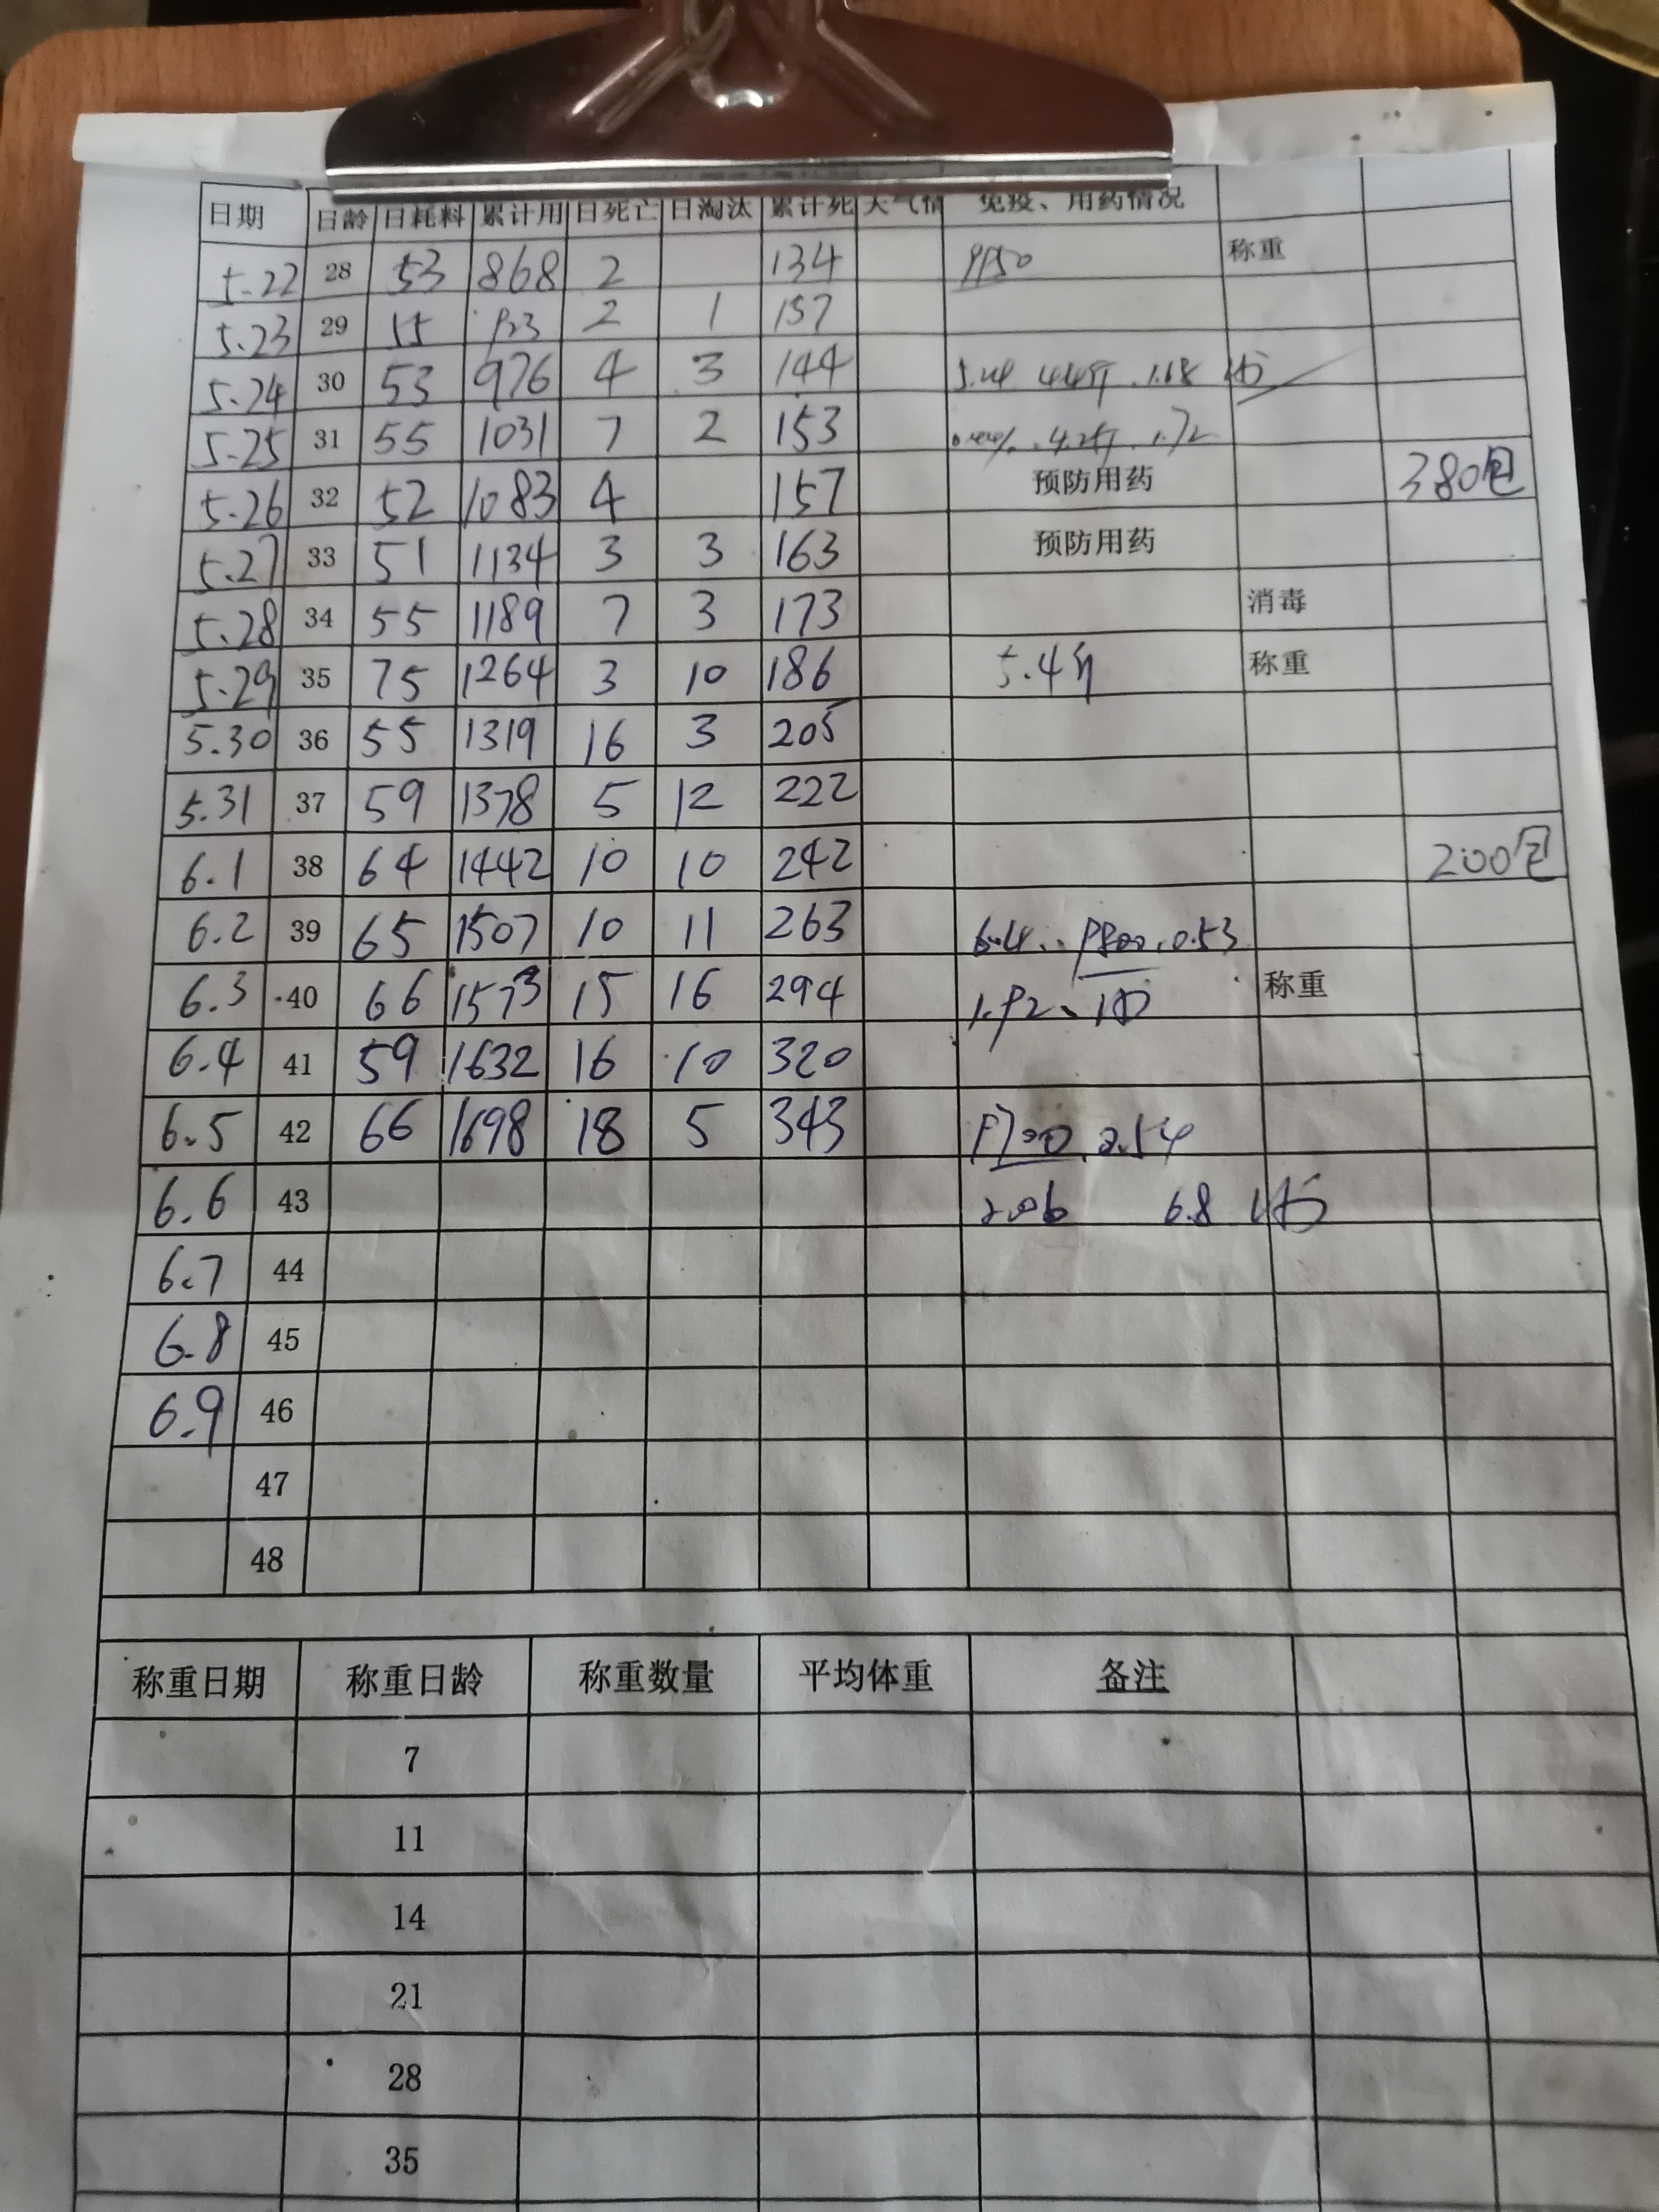 日期 日龄 日耗料 累计用 日死亡 日淘汰 累计死 天气情 免疫、用药情况
5.22 28 53 868 2 134 称重
5.23 29 55 923 2 1 137
5.24 30 53 976 4 3 144 5.24 4.4斤 1.68
5.25 31 55 1031 7 2 153 1.72
5.26 32 52 1083 4 157 预防用药 380包
5.27 33 51 1134 3 3 163 预防用药
5.28 34 55 1189 7 3 173 消毒
5.29 35 75 1264 3 10 186 5.4斤 称重
5.30 36 55 1319 16 3 205
5.31 37 59 1378 5 12 222
6.1 38 64 1442 10 10 242 200包
6.2 39 65 1507 10 11 263 0.53
6.3 40 66 1573 15 16 294 1.92 称重
6.4 41 59 1632 16 10 320
6.5 42 66 1698 18 5 343
6.6 43 2.06 6.8
6.7 44
6.8 45
6.9 46
47
48
称重日期 称重日龄 称重数量 平均体重 备注
7
11
14
21
28
35